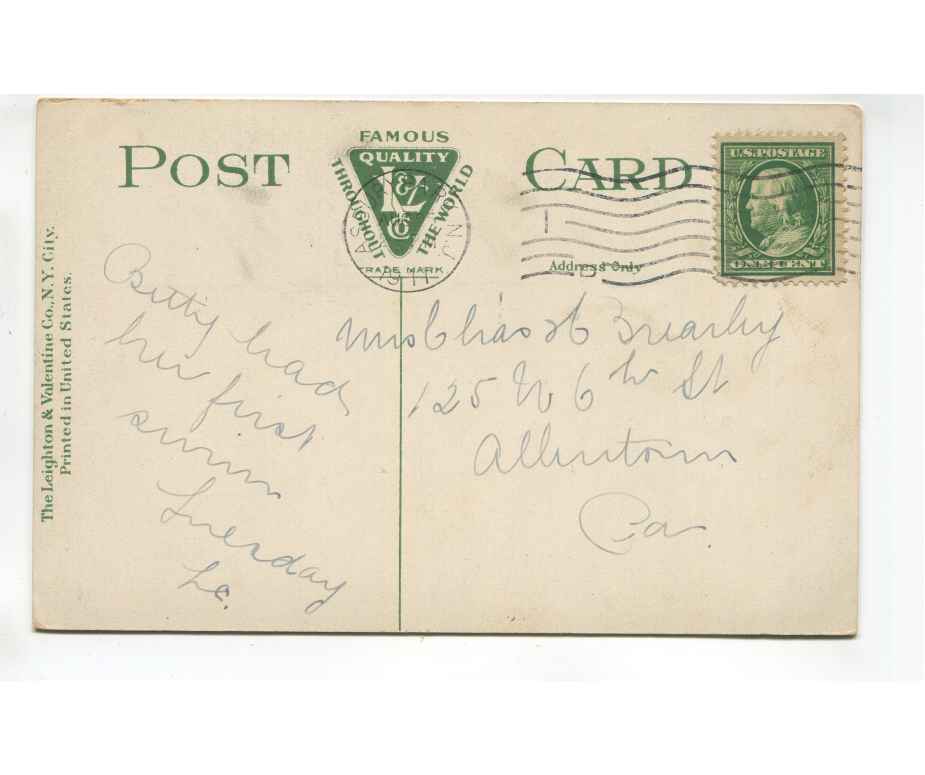 POST CARD
FAMOUS
QUALITY
THROUGHOUT
THE WORLD
L&V
Co
TRADE MARK
U.S. POSTAGE
ONE CENT
N.J.
1911
Address Only
The Leighton & Valentine Co., N.Y. City.
Printed in United States.
Betty had
her first
swim
Tuesday
Mrs Chas H Brearley
125 N 6th St
Allentown
Pa